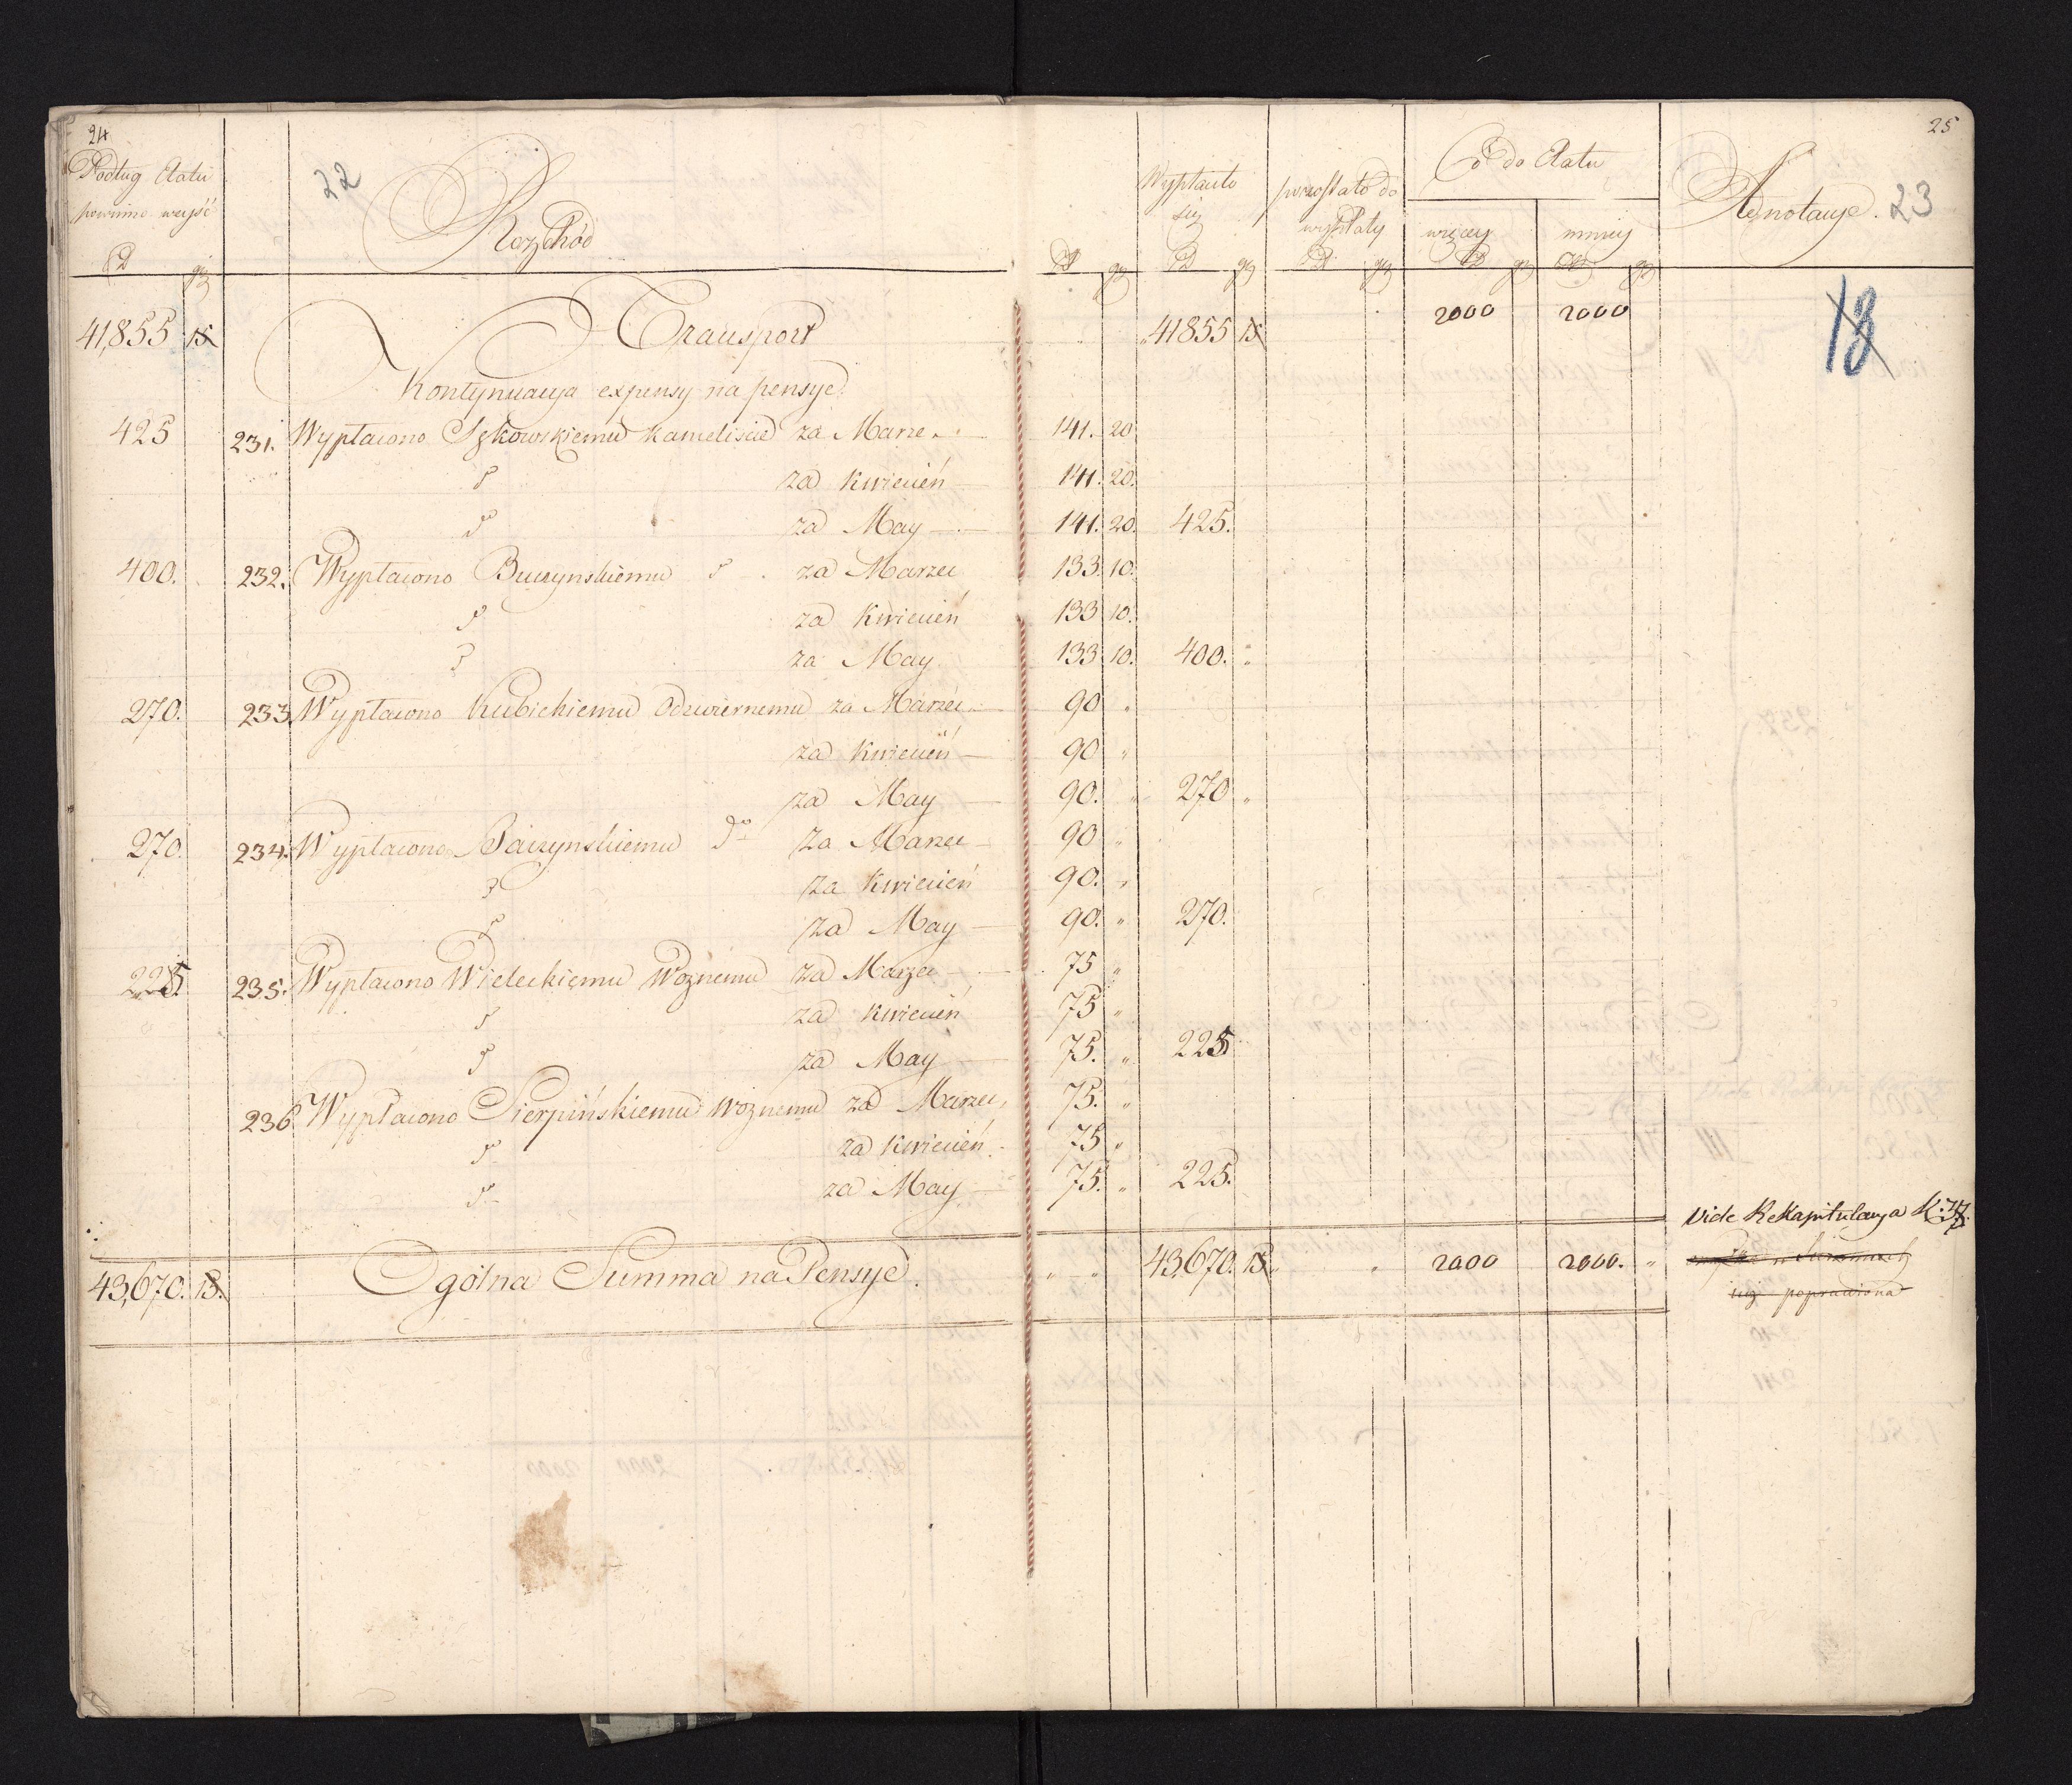 24
25
22
23
Podług Etatu
powinno wyiść
Rozchód
Wypłaciło
się
pozostało do
wypłaty
Co do Etatu
więcey
mniey
Adnotacye.
13
41,855 15 Transport 41855 15 2000 2000
Kontynuacya expensy na pensye.
425 231. Wypłacono Sękowskiemu Kanceliście za Marze 141. 20
za Kwiecień 141. 20.
za May 141. 20. 425.
400. 232. Wypłacono Buczynskiemu za Marzec 133. 10.
za Kwiecień 133 10.
za May 133 10. 400.
270. 233. Wypłacono Kubickiemu Odzwiernemu za Marzec 90 "
za Kwiecień 90 "
za May 90. " 270 "
270. 234. Wypłacono Baczynskiemu do za Marzec 90 "
za Kwiecień 90. "
za May 90. " 270.
225. 235. Wypłacono Wieleckiemu Woznemu za Marzec 75 "
za Kwiecień 75 "
za May 75. " 225
236 Wypłacono Sierpińskiemu Woznemu za Marzec, 75. "
za Kwiecień. 75 "
za May 75. " 225.
Vide Rekapitulacya K:
43,670. 15. Ogólna Summa na Pensye. " " 43,670. 15. " 2000 2000. "
w Summach
się poprawiona